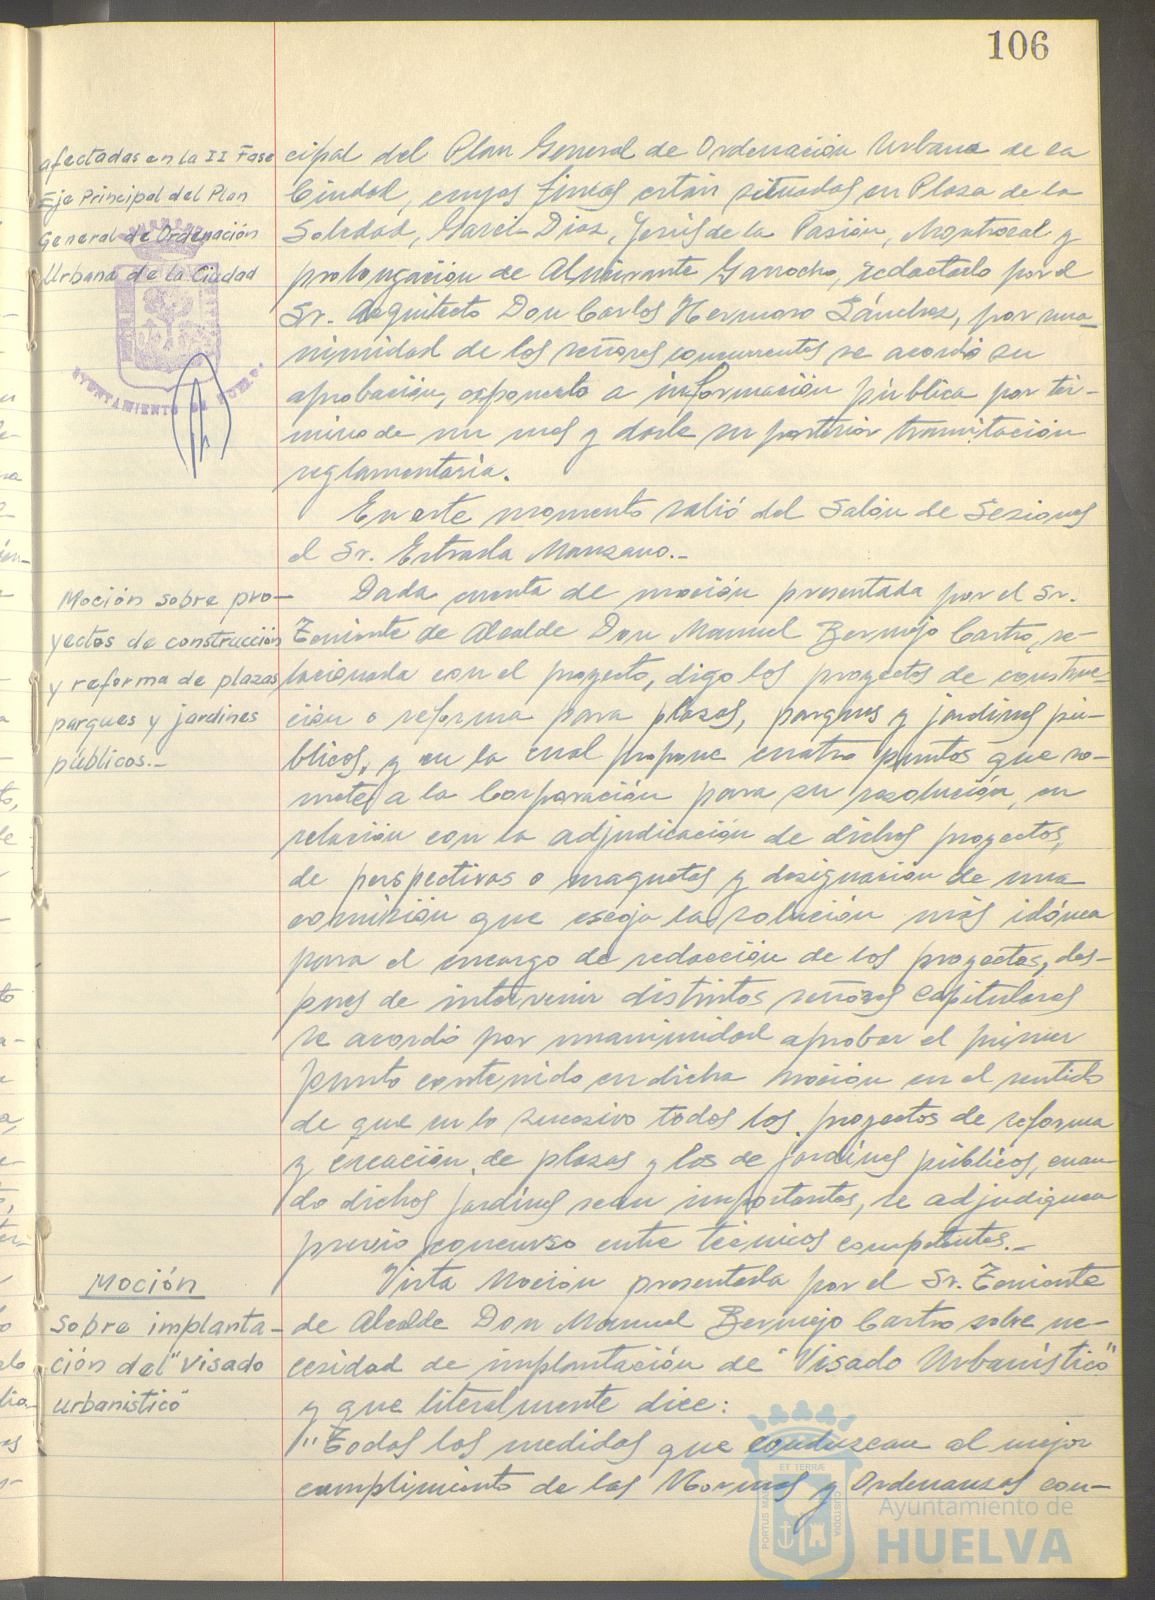 106
afectadas en la II Fase
Eje Principal del Plan
General de Ordenación
Urbana de la Ciudad
AYUNTAMIENTO DE HUELVA
cipal del Plan General de Ordenación Urbana de la
Ciudad, cuyas fincas están situadas en Plaza de la
Soledad, Garci-Diaz, Jesús de la Pasión, Montrocal y
prolongación de Almirante Garrocho, redactado por el
Sr. Arquitecto Don Carlos Hermoso Sánchez, por una-
nimidad de los señores concurrentes se acordó su
aprobación, exponerlo a información pública por tér-
mino de un mes y darle su posterior tramitación
reglamentaria.
En este momento salió del Salón de Sesiones
el Sr. Estrada Manzano.-
Moción sobre pro-
yectos de construcción
y reforma de plazas
parques y jardines
públicos.-
Dada cuenta de moción presentada por el Sr.
Teniente de Alcalde Don Manuel Bermejo Castro, re-
lacionada con el proyecto, digo los proyectos de construc-
ción o reforma para plazas, parques y jardines pú-
blicos, y en la cual propone cuatro puntos que so-
mete a la Corporación para su resolución, en
relación con la adjudicación de dichos proyectos,
de perspectivas o maquetas y designación de una
comisión que escoja la solución más idónea
para el encargo de redacción de los proyectos, des-
pues de intervenir distintos señores Capitulares
se acordó por unanimidad aprobar el primer
punto contenido en dicha moción en el sentido
de que en lo sucesivo todos los proyectos de reforma
y creación de plazas y los de jardines públicos, cuan-
do dichos jardines sean importantes, se adjudiquen
previo concurso entre técnicos competentes.-
Moción
sobre implanta-
ción del "Visado
urbanistico"
Vista Moción presentada por el Sr. Teniente
de Alcalde Don Manuel Bermejo Castro sobre ne-
cesidad de implantación de "Visado Urbanístico"
y que literalmente dice:
"Todas las medidas que conduzcan al mejor
cumplimiento de las Normas y Ordenanzas con-
PORTUS MARIS ET TERRÆ CUSTODIA
Ayuntamiento de
HUELVA